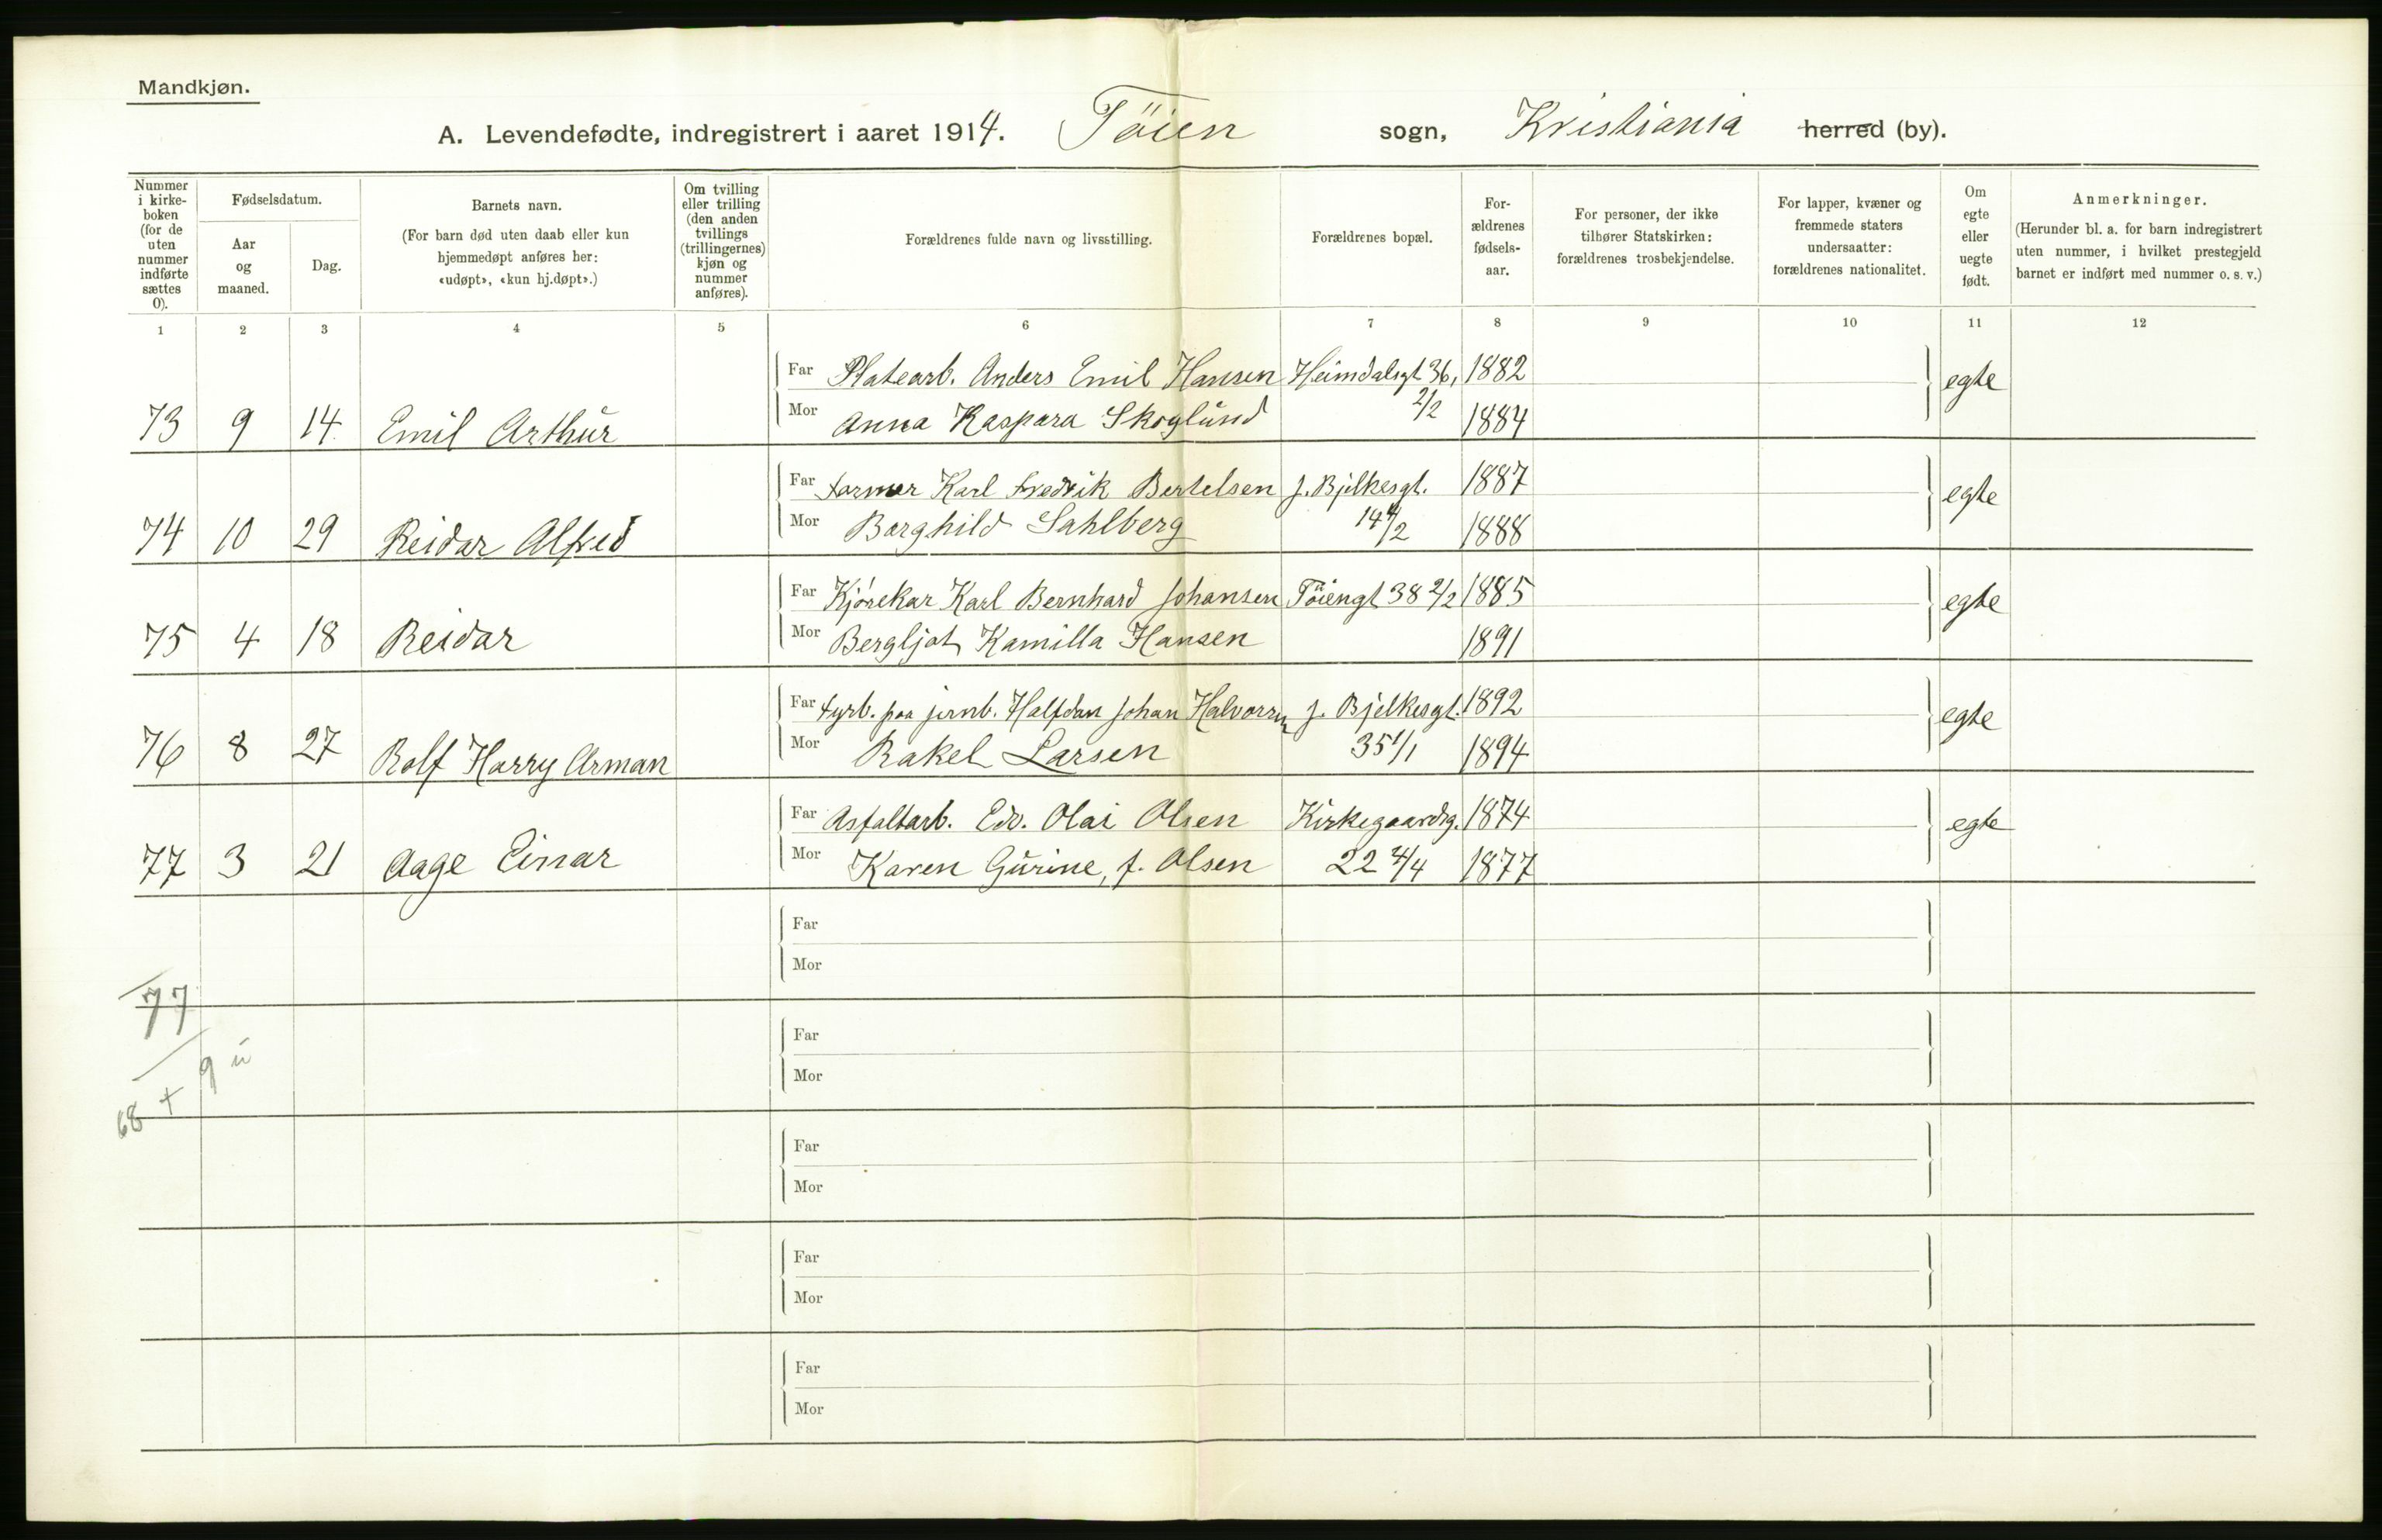 Mandkjøn.
A. Levendefødte, indregistrert i aaret 1914. Töien sogn, Kristiania herred (by).
Nummer i kirkeboken (for de uten nummer indførte sættes 0).
Fødselsdatum.
Aar og maaned.
Dag.
Barnets navn.
(For barn død uten daab eller kun hjemmedøpt anføres her: «udøpt», «kun hj.døpt».)
Om tvilling eller trilling (den anden tvillings (trillingernes) kjøn og nummer anføres).
Forældrenes fulde navn og livsstilling.
Forældrenes bopæl.
Forældrenes fødselsaar.
For personer, der ikke tilhører Statskirken: forældrenes trosbekjendelse.
For lapper, kvæner og fremmede staters undersaatter: forældrenes nationalitet.
Om egte eller uegte født.
Anmerkninger.
(Herunder bl. a. for barn indregistrert uten nummer, i hvilket prestegjeld barnet er indført med nummer o. s. v.)
1 2 3 4 5 6 7 8 9 10 11 12
Far Platearb. Anders Emil Hansen Heimdalsgt 36, 1882 egte
73 9 14 Emil Arthur Mor Anna Kaspara Skoglund 2/2 1884
Far Former Karl Fredrik Bertelsen J. Bjelkesgt. 1887 egte
74 10 29 Reidar Alfred Mor Borghild Sahlberg 14 4/2 1888
Far Kjörekar Karl Bernhard Johansen Töiengt 38 2/2 1885 egte
75 4 18 Reidar Mor Bergljot Kamilla Hansen 1891
Far Fyrb. paa jernb. Halfdan Johan Halvorsen J. Bjelkesgt. 1892 egte
76 8 27 Rolf Harry Arman Mor Rakel Larsen 35 1/1 1894
Far Asfaltarb. Edv. Olai Olsen Kirkegaardsg. 1874 egte
77 3 21 Aage Einar Mor Karen Gurine, f. Olsen 22 4/4 1877
Far
Mor
77
Far
9 u
Mor
68 +
Far
Mor
Far
Mor
Far
Mor